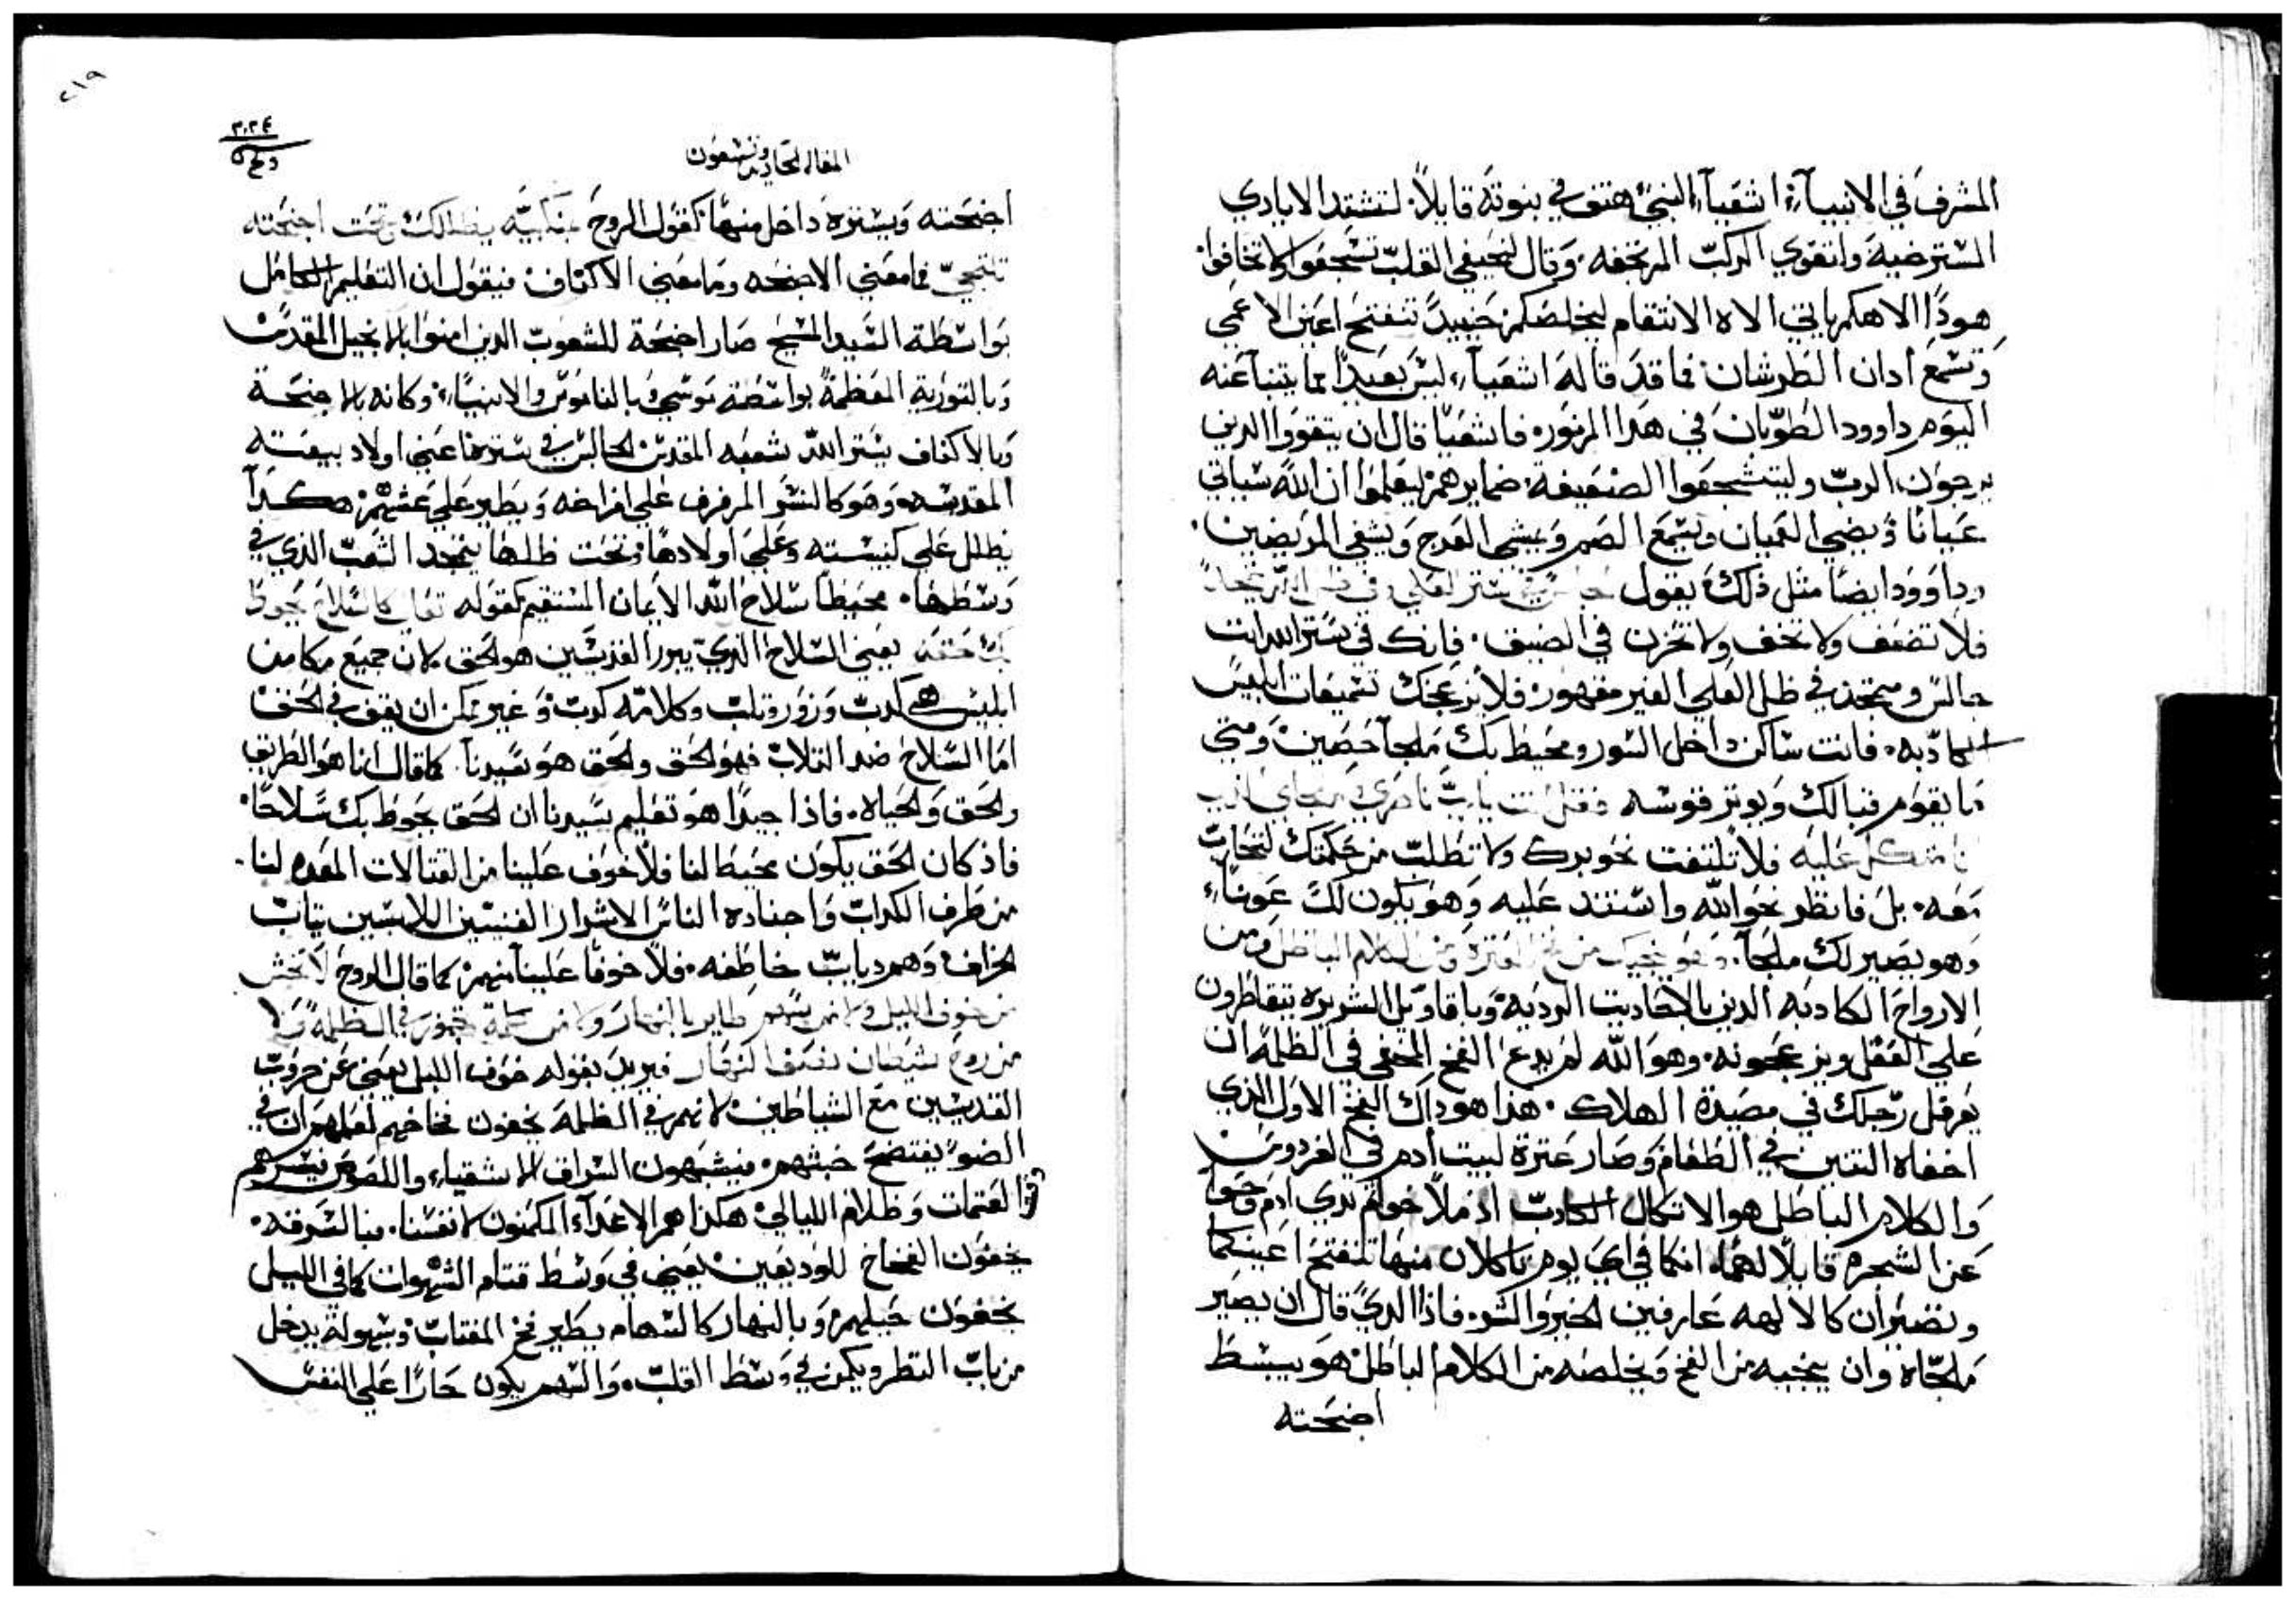 المشرف في الانبيآء اشعيآء النبي هتف في بنوته قايلاً لتشتد الايادي
المسترخية ولتقوي الركب المرتجفه. وقال لخيفي القلب تشجعوا لا تخافوا
هودا الاهكم ياتي الاه الانتقام ليخلصكم حينيدً تنفتح اعين الاعمي
وتسمع ادان الطرشان فما قد قاله اشعيآء ليس بعيدًا مما يتنبا عنه
اليوم داوود الطوبان في هدا المزمور. فاشعيا قال ان يتقووا الدين
يرجون الرب وليتشجعوا الضعيفة ضمايرهم ليعلموا ان الله سياتي
عيانًا ويضي العميان ويسمع الصم ويمشي العرج ويشفي المريضين.
وداوود ايضا مثل ذلك يقول
فلا تضعف ولا تخف ولا تحزن في الضيق. فانك في ستر الله انت
جالس ومتخذ في ظل العلي الغير مقهور فلا تزعجك تشميعات ابليس
الكادبه. فانت ساكن داخل السور ومحيط بك ملجآ حصين ومتي
ما يقوم قبالك ويوتر قوسه فقل انت يا رب ناصري وملجاي الدي
انا متكل عليه فلا تلتفت نحو برك ولا تطلب من حكمتك لتحارب
معه. بل فانظر نحو الله واستند عليه وهو يكون لك عونًا
وهو يصير لك ملجآ. وهو ينجيك من فخ العترة ومن الكلام الباطل ومن
الارواح الكادبه الدين بالاحاديت الرديه وباقاويل الشريره يتقاطرون
علي العقل ويزعجونه. وهو الله لم يدع الفخ المخفي في الظلمة ان
يعرقل رجلك في مصيدة الهلاك. هذا هو داك الفخ الاول الدي
اخفاه التنين في الطعام وصار عترة لبيت ادم في الفردوس
والكلام الباطل هو الاتكال الكادب اذ ملا خواتم يدي ادم وحوا
عن الشجره قايلًا لهما انكما في اي يوم تاكلان منها تنفتح اعينكما
وتصيران كالالهه عارفين الخير والشر. فاذا الدي قال ان يصير
ملجاه وان ينجيه من الفخ ويخلصه من الكلام الباطل هو يبسط
اجنحته
٢١٩
المقاله الحاديه وتسعون
اجنحته ويستره داخل منها كقول الروح بمنكبيه يظللك وتحت اجنحته
تلتجي فما معني الاجنحه وما معني الاكتاف فيقول ان التعليم الكامل
بواسطة السيد المسيح صار اجنحة للشعوب الدين امنوا بالانجيل المقدس
وبالتورية المعظمة بواسطة موسي وبالناموس والانبيآء. وكانه بالاجنحة
وبالاكتاف يستر الله شعبه المقدس الجالس في ستره اعني اولاد بيعته
المقدسه. وهو كالنسر المرفرف علي افراخه ويطير علي عشهم هكدآ
يظلل علي كنيسته وعلي اولادها وتحت ظلها يتمجد الشعب الذي في
وسطها. محيطا سلاح الله الايمان المستقيم كقوله تعالي كالسلاح يحوط
بك حقه يعني السلاح الذي يبرر القديسين هو الحق لان جميع مكامن
ابليس هي كدب وزور وتلب وكلامه كدب وغير ممكن ان يقف في الحق
اما السلاح ضد التلاب فهو الحق والحق هو سيدنا. كما قال انا هو الطريق
والحق والحياه. فاذا جيدًا هو تعليم سيدنا ان الحق يحوط بك سلاحًا.
فاذ كان الحق يكون محيطا لنا فلا خوف علينا من القتالات المعده لنا.
من طرف الكداب واجناده الناس الاشرار الفنيسين اللابسين تياب
الخراف وهم ديابٌ خاطفه. فلا خوفًا علينا منهم كما قال الروح لا تخش
من خوف الليل ولا من سهم طاير بالنهار ولا من سلمة تجوز في الظلمة ولا
من روح شيطان نصف النهار فيريد بقوله خوف الليل يعني عن حروب
القديسين مع الشياطين. لانهم في الظلمة يخفون فخاخهم لعلمهم ان في
الضو يفتضح خبثهم. فيشبهون السراق الاشقياء واللصوص يسترهم
العتمات وظلام الليالي هكذا هم الاعدآء المكمنون لانفسنا. فبالسرقه
يخفون الفخاخ للوديعين يعني في وسط قتام الشهوات كما في الليل
يخفون حيلهم. وبالنهار كالسهام يطير فخ المغتاب وبسهولة يدخل
من باب النظر ويكمن في وسط القلب. والسهم يكون حارًا علي النفس